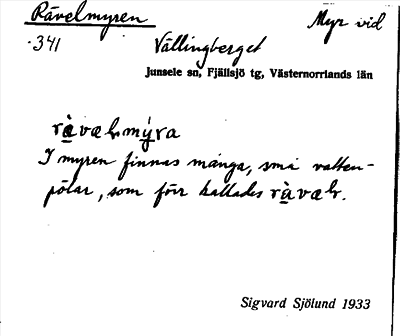 Rävelmyren Myr vid
-341 Vällingberget
Junsele sn, Fjällsjö tg, Västernorrlands län
I myren finnas många, små vatten-
pölar, som förr kallades
Sigvard Sjölund 1933